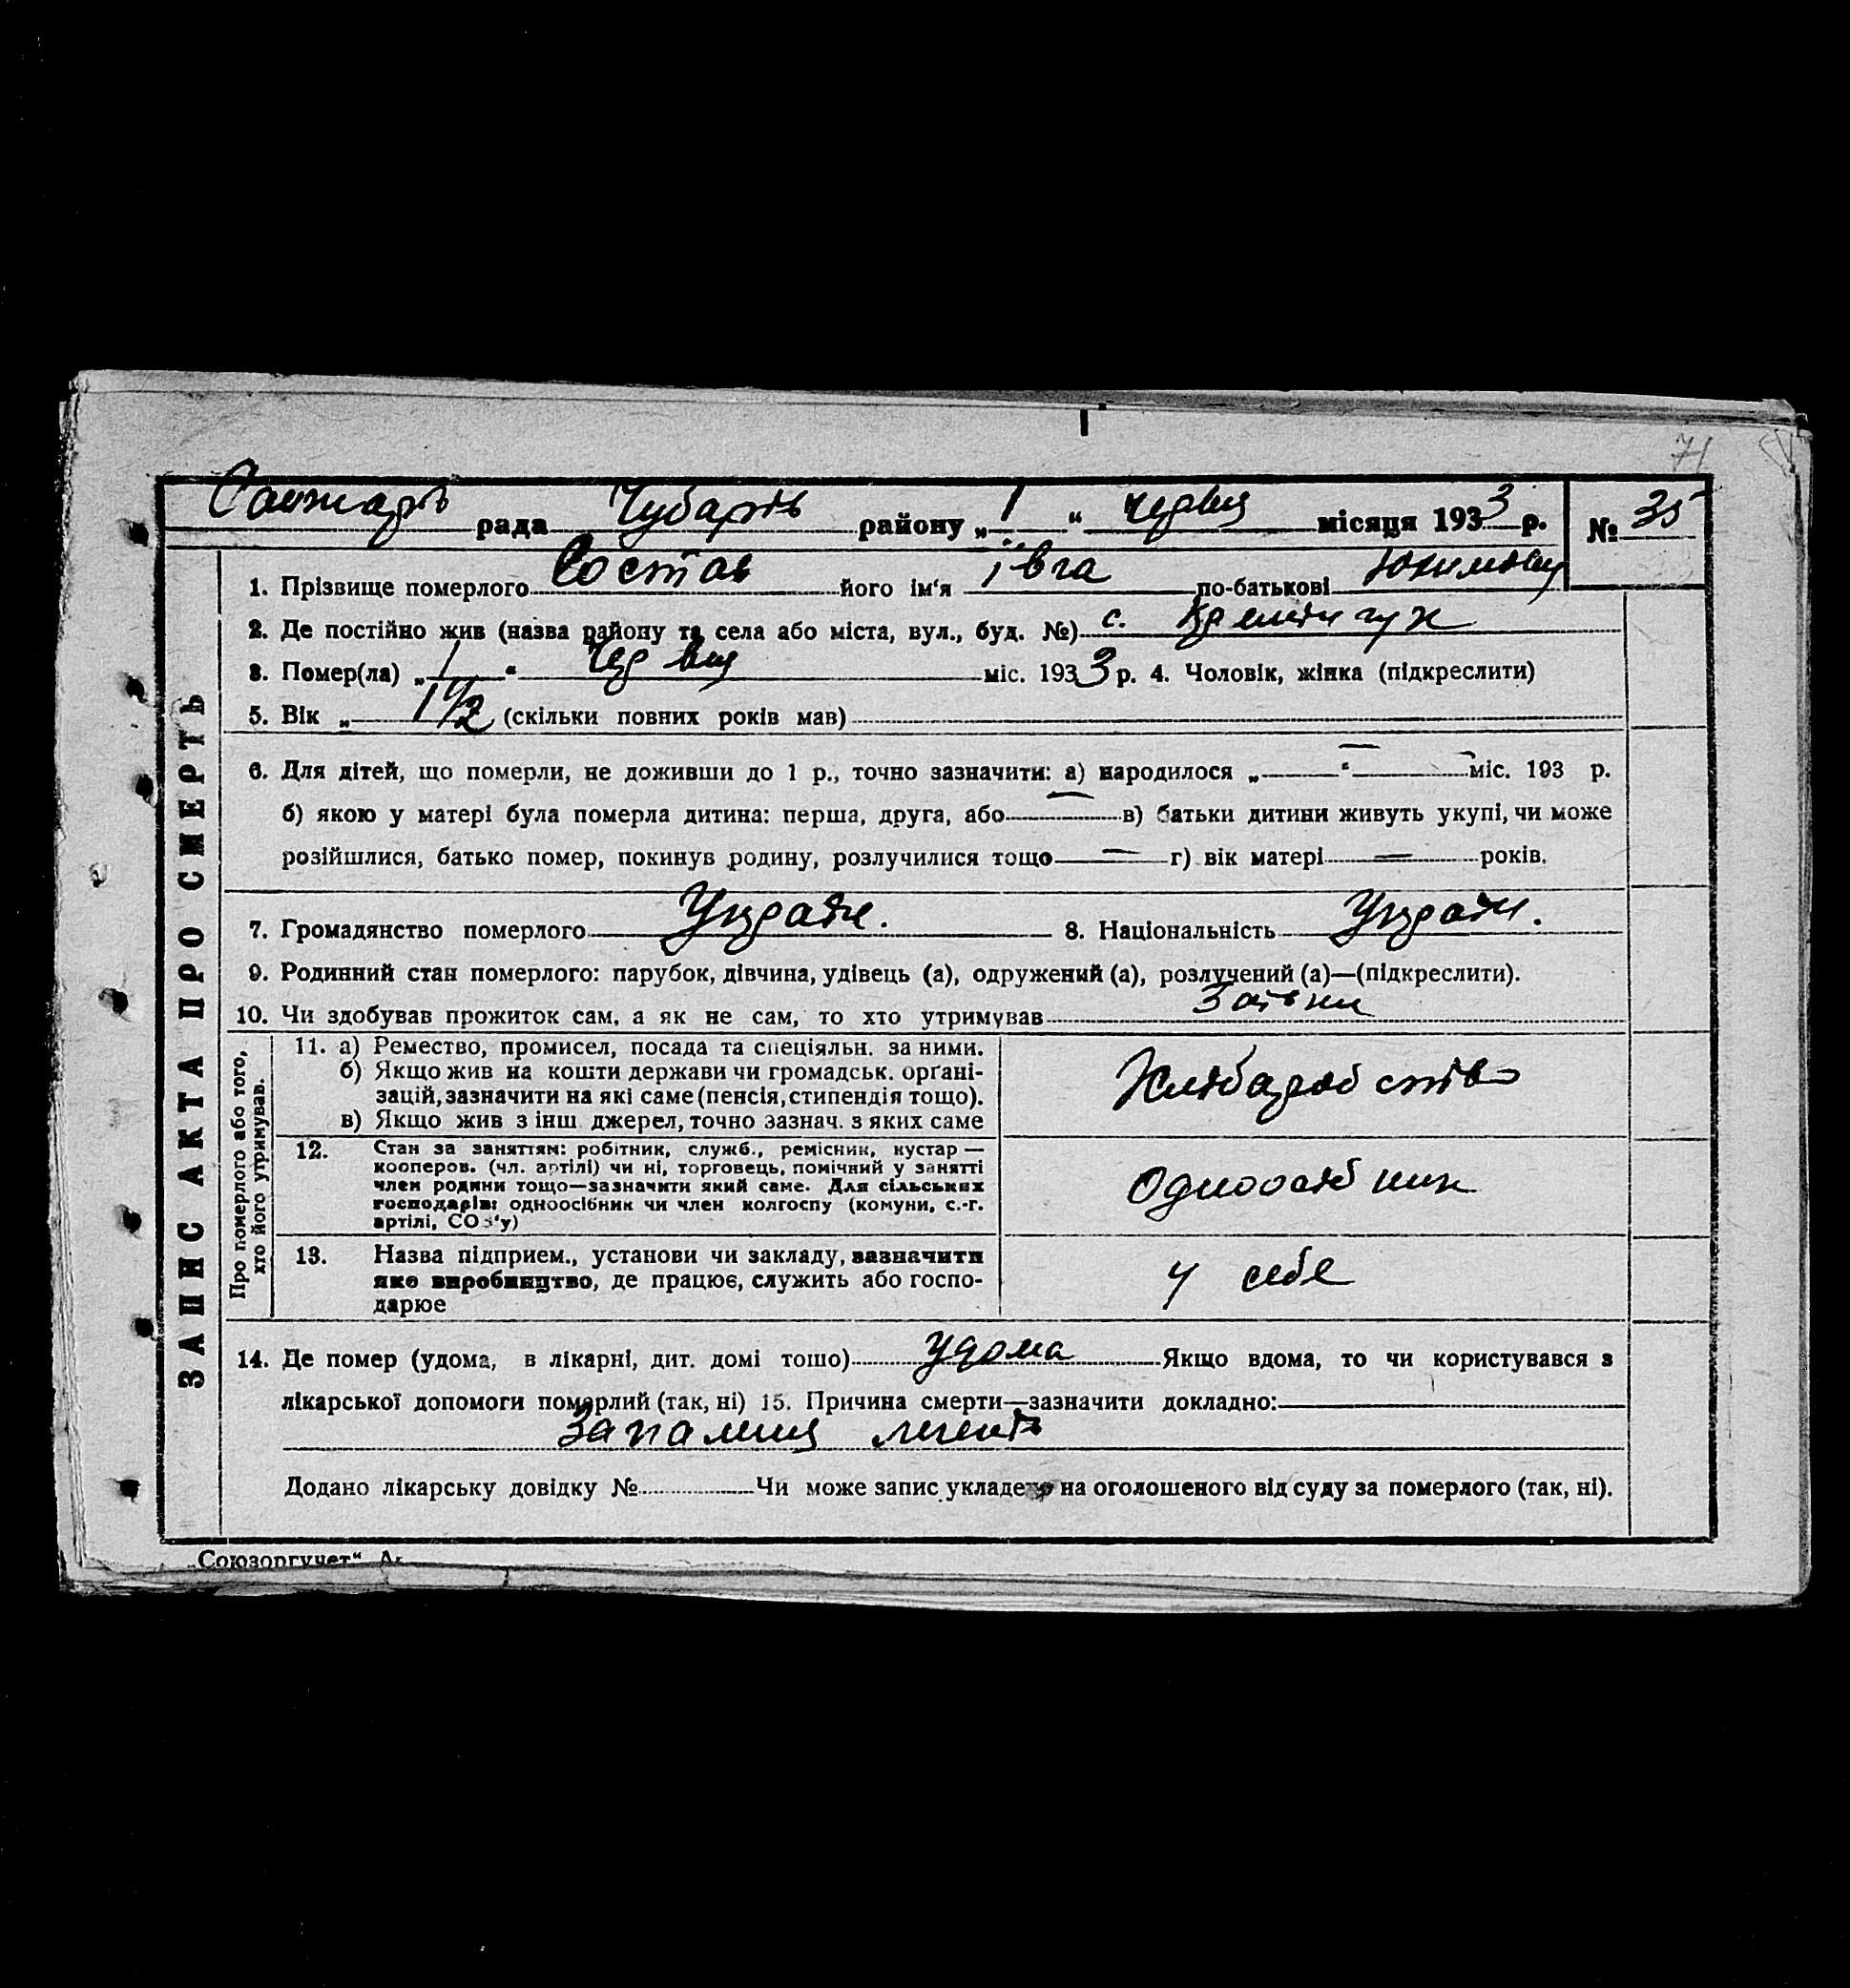 71
Чубарів рада району „1“ червця місяця 1933 р. № 35
1. Прізвище померлого Состав його ім‘я Івга по-батькові Юхимовц
2. Де постійно жив (назва району та села або міста, вул., буд. №) с. Кременчук
3. Помер(ла) „1“ червця міс. 1933 р. 4. Чоловік, жінка (підкреслити)
5. Вік „ 1 1/2 (скільки повних років мав)
6. Для дітей, що померли, не доживши до 1 р., точно зазначити: а) народилося „—“ — міс. 193 р.
б) якою у матері була померла дитина: перша, друга, або — в) батьки дитини живуть укупі, чи може
розійшлися, батько помер, покинув родину, розлучилися тощо — г) вік матері — років.
7. Громадянство померлого Україн. 8. Національність Україн.
9. Родинний стан померлого: парубок, дівчина, удівець (а), одружений (а), розлучений (а)—(підкреслити).
10. Чи здобував прожиток сам, а як не сам, то хто утримував
ЗАПИС АКТА ПРО СМЕРТЬ
Про померлого або того, хто його утримував.
11. а) Ремество, промисел, посада та спеціяльн. за ними.
б) Якщо жив на кошти держави чи громадськ. орґані-
зацій, зазначити на які саме (пенсія, стипендія тощо).
в) Якщо жив з інш джерел, точно зазнач. з яких саме
Хлібаробство
12. Стан за заняттям: робітник, служб., ремісник, кустар —
кооперов. (чл. артілі) чи ні, торговець, помічний у занятті
член родини тощо—зазначити який саме. Для сільських
господарів: одноосібник чи член колгоспу (комуни, с.-г.
артілі, СОЗ‘у)
Одноосібник
13. Назва підприєм., установи чи закладу, зазначити
яке виробництво, де працює, служить або госпо-
дарює
у себе
14. Де помер (удома, в лікарні, дит. домі тошо) Удома Якщо вдома, то чи користувався з
лікарської допомоги померлий (так, ні) 15. Причина смерти—зазначити докладно:
Запалиця легенів
Додано лікарську довідку № Чи може запис укладено на оголошеного від суду за померлого (так, ні).
„Союзоргучет“